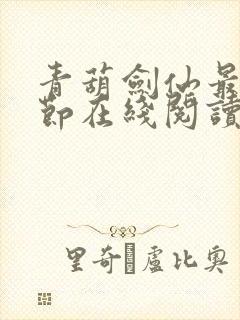 青葫劍仙最
節在綫閱讀
里奇·盧比奧